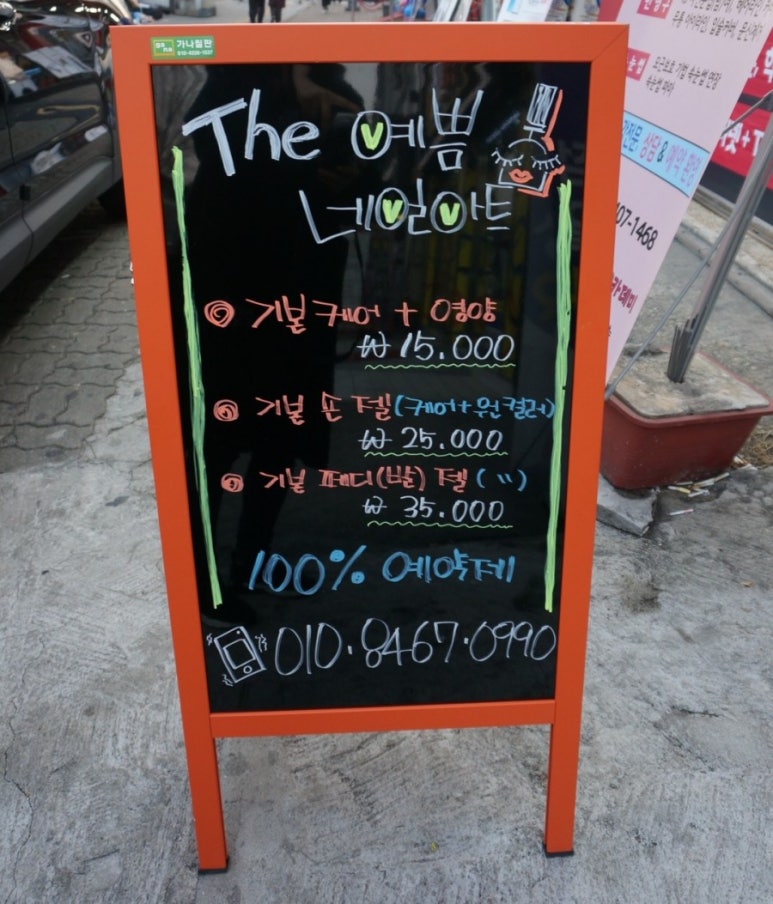 가나칠판
The 예쁨
네일아트
기본케어 + 영양
₩ 15.000
기본 손 젤(케어+원컬러)
₩ 25.000
기본 페디(발) 젤 ( 〃 )
₩ 35.000
100% 예약제
010.8467.0990
속눈썹 연장
전문 상담 & 예약 환영
07-1468